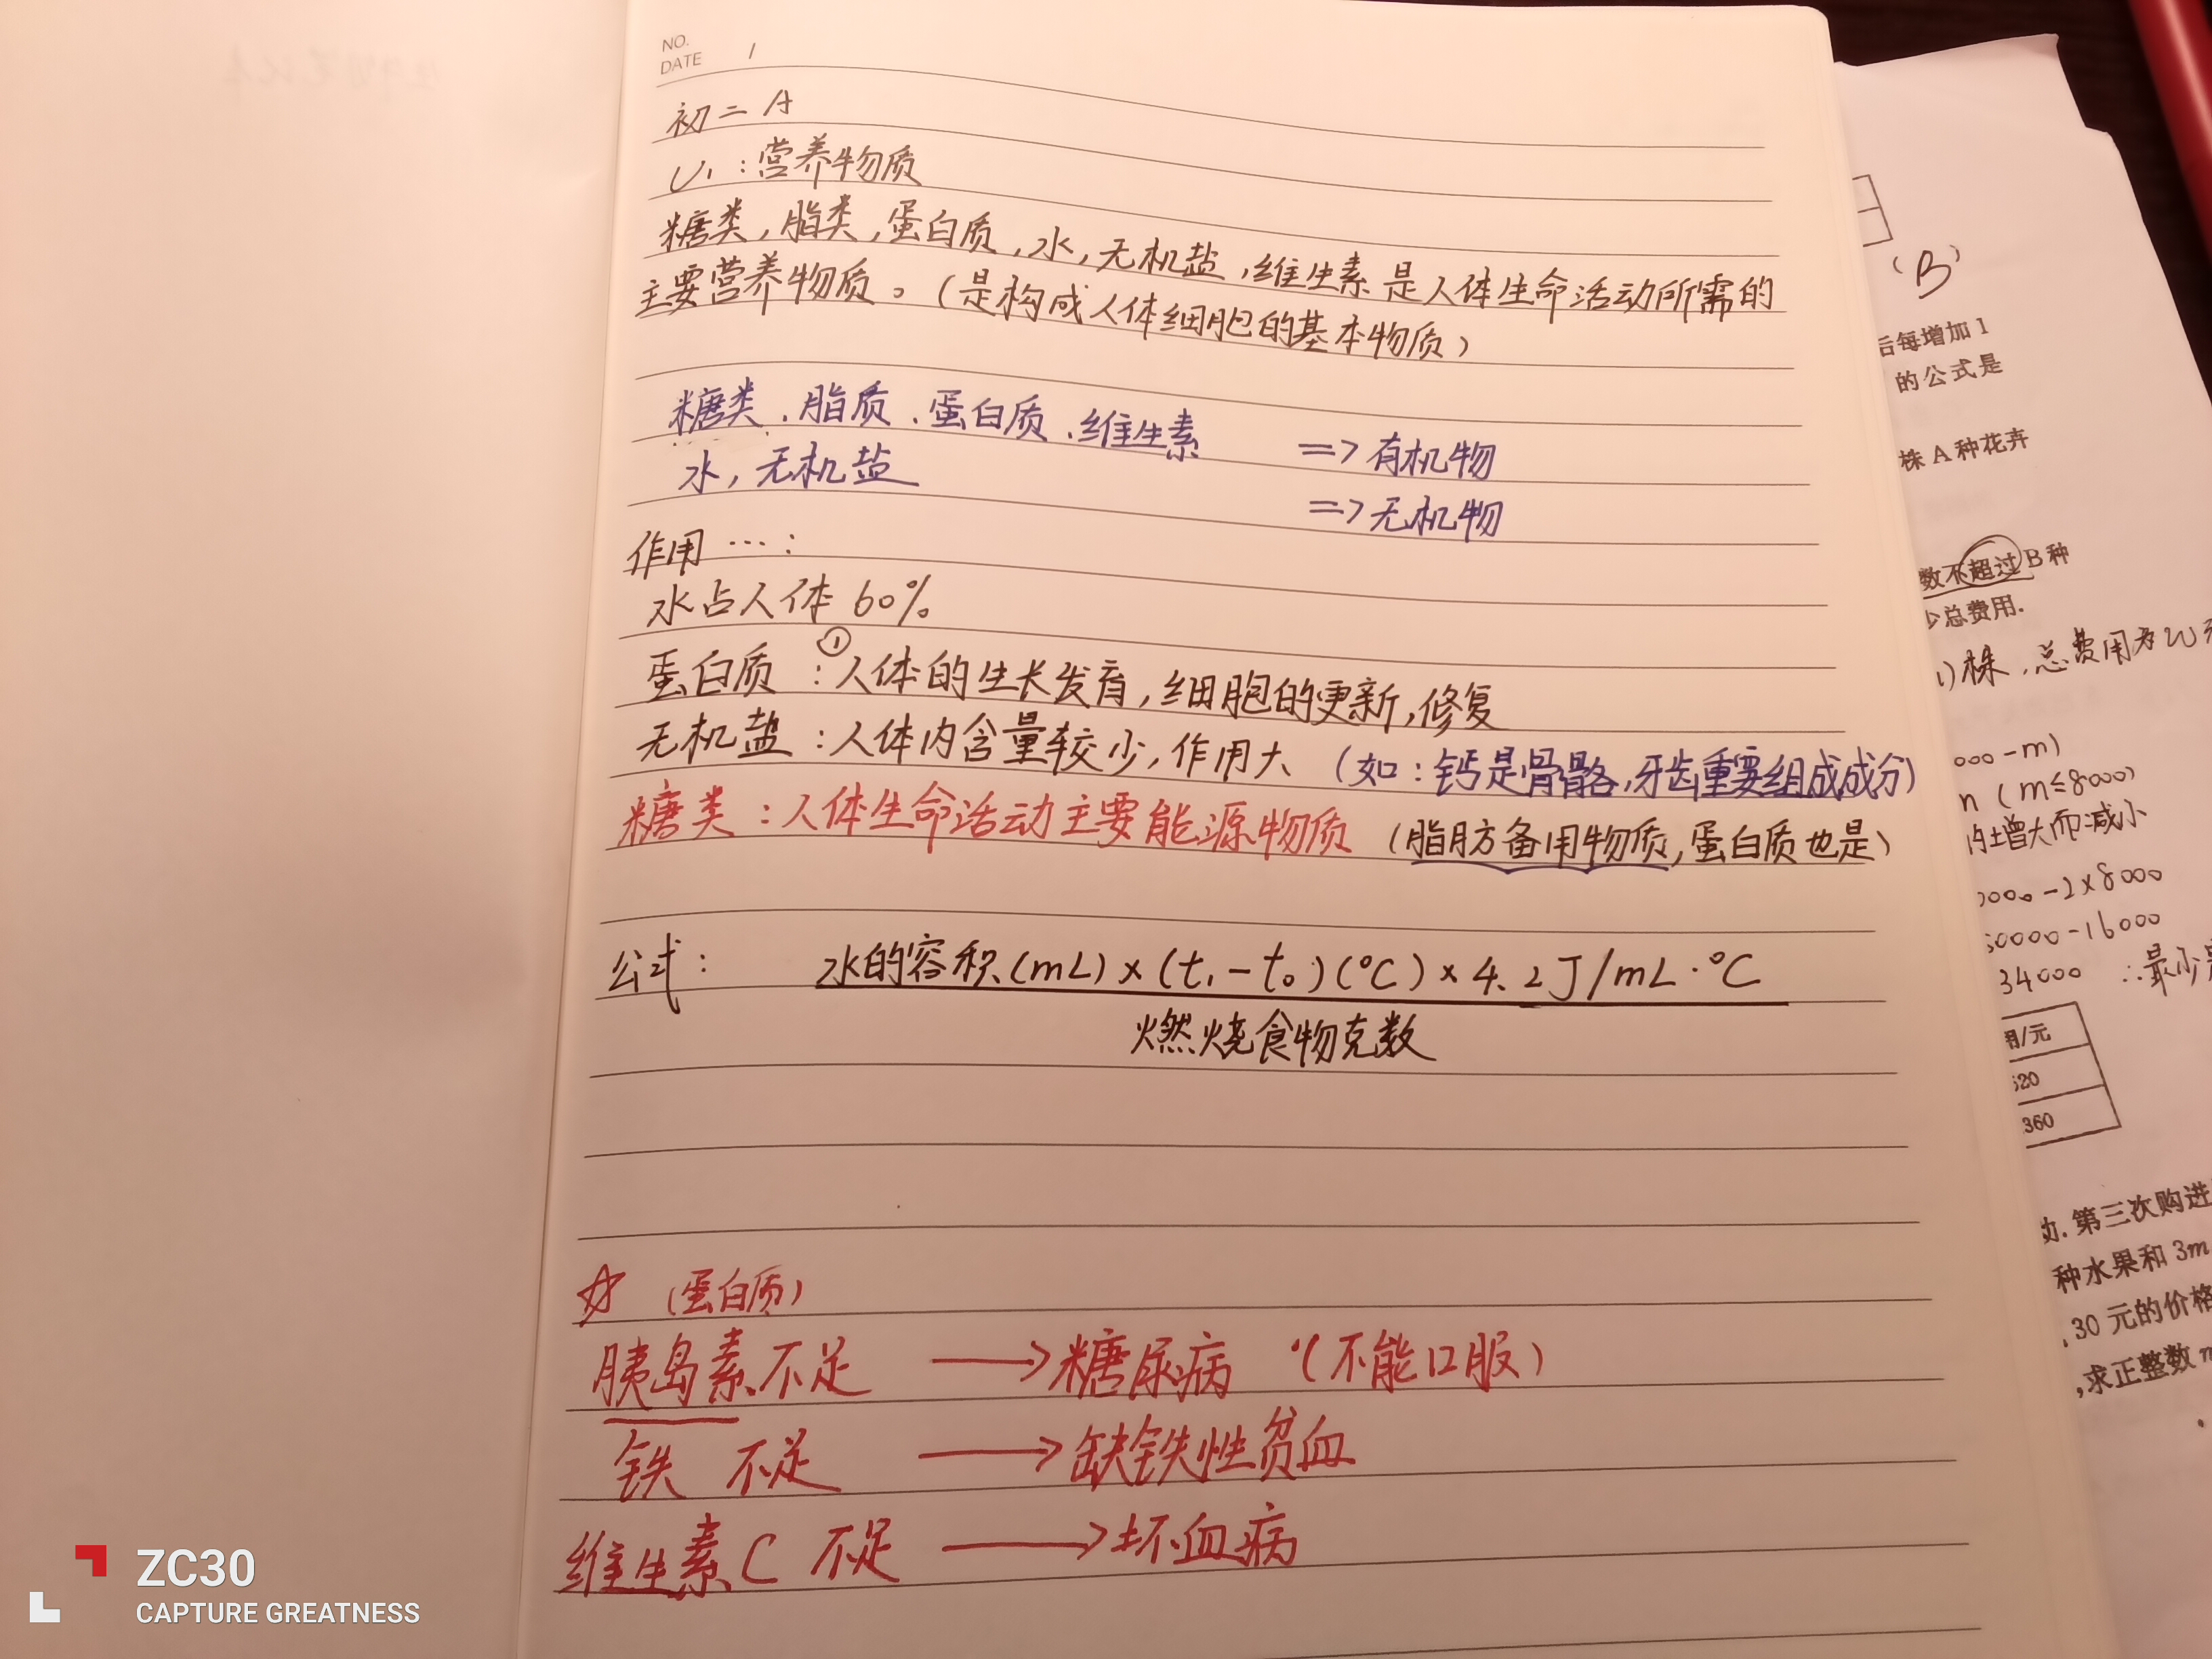 NO.
DATE /
初二 A
U1：营养物质
糖类，脂类，蛋白质，水，无机盐，维生素是人体生命活动所需的
主要营养物质。（是构成人体细胞的基本物质）
糖类、脂质、蛋白质、维生素 => 有机物
水，无机盐 => 无机物
作用 …：
水占人体 60%
蛋白质：①人体的生长发育，细胞的更新，修复
无机盐：人体内含量较少，作用大（如：钙是骨骼，牙齿重要组成成分）
糖类：人体生命活动主要能源物质（脂肪备用物质，蛋白质也是）
公式： 水的容积(mL)×(t₁-t₀)(°C)×4.2J/mL·°C
燃烧食物克数
☆ （蛋白质）
胰岛素不足 → 糖尿病（不能口服）
铁 不足 → 缺铁性贫血
维生素C 不足 → 坏血病
(B)
后每增加 1
的公式是
株 A 种花卉
数不超过 B 种
少总费用.
株，总费用为W
000-m)
n (m≤8000)
的增大而减小
0000-2×8000
50000-16000
34000 ∴最少
用/元
520
360
第三次购进
种水果和 3m
30 元的价格
,求正整数 m
ZC30
CAPTURE GREATNESS